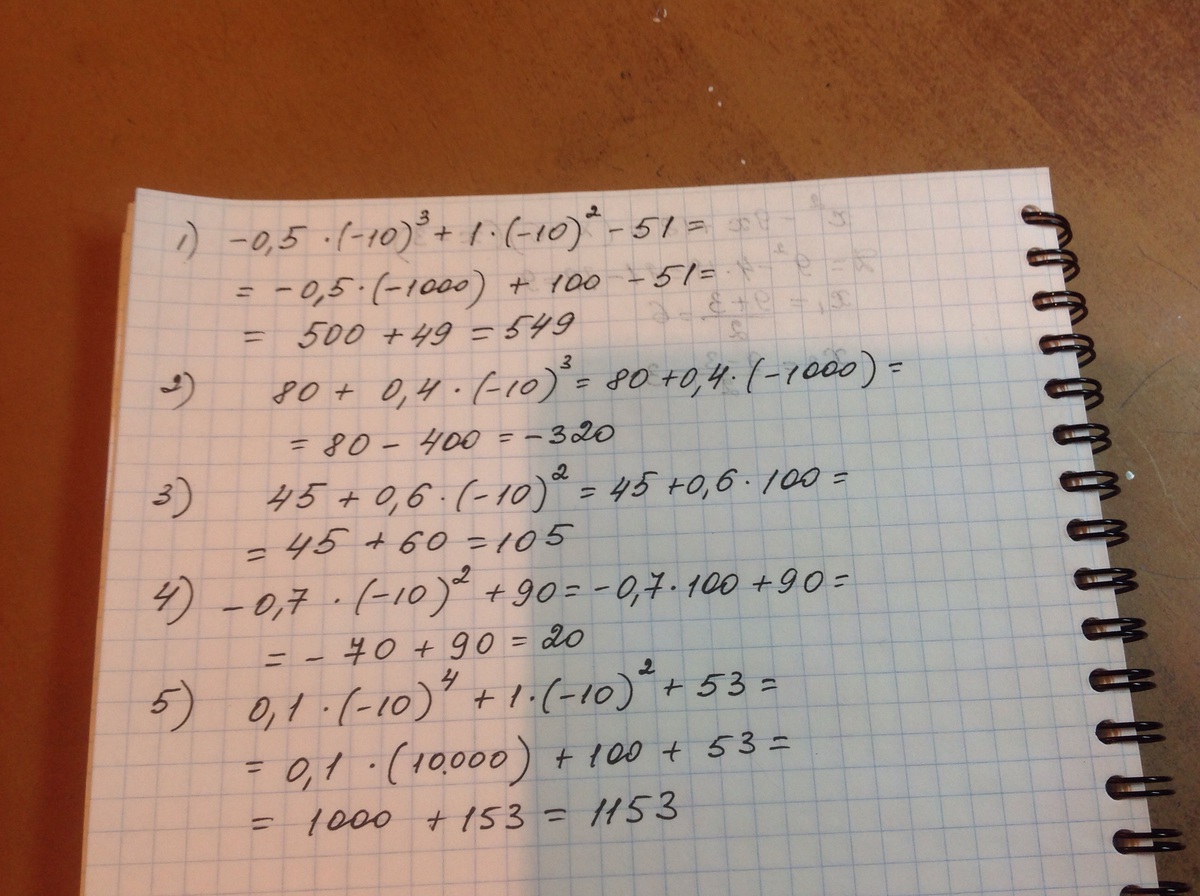 1) -0,5 · (-10)³ + 1 · (-10)² - 51 =
= -0,5 · (-1000) + 100 - 51 =
= 500 + 49 = 549
2) 80 + 0,4 · (-10)³ = 80 + 0,4 · (-1000) =
= 80 - 400 = -320
3) 45 + 0,6 · (-10)² = 45 + 0,6 · 100 =
= 45 + 60 = 105
4) -0,7 · (-10)² + 90 = -0,7 · 100 + 90 =
= - 70 + 90 = 20
5) 0,1 · (-10)⁴ + 1 · (-10)² + 53 =
= 0,1 · (10.000) + 100 + 53 =
= 1000 + 153 = 1153